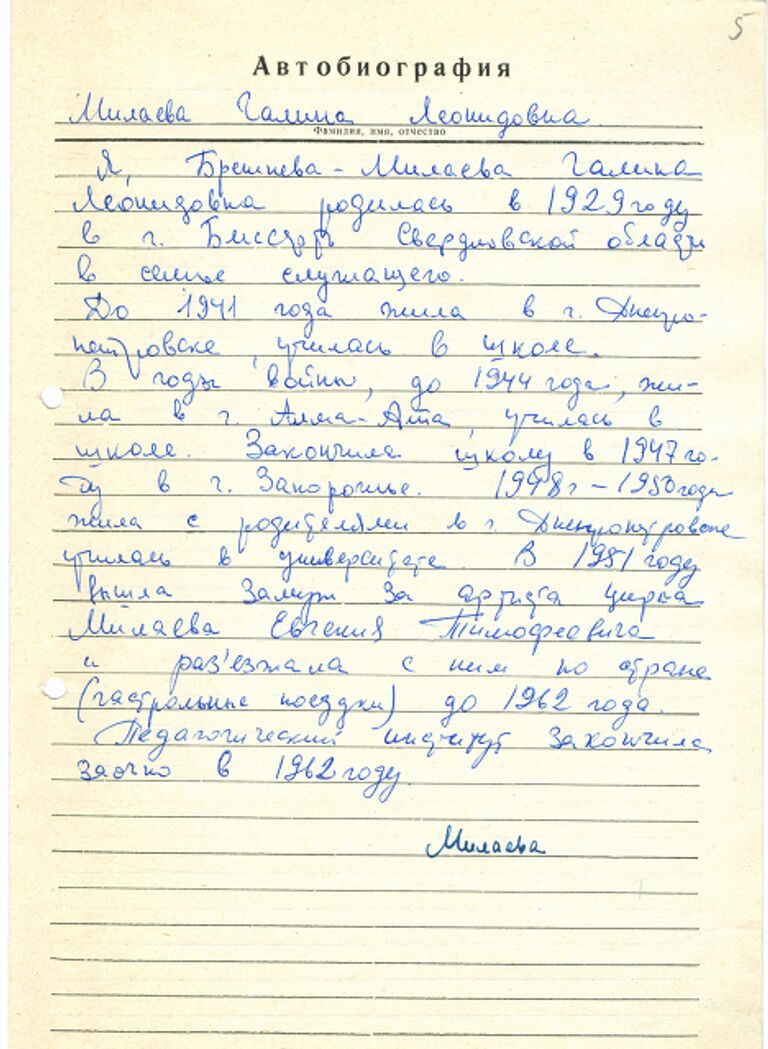 5
Автобиография
Милаева Галина Леонидовна
Фамилия, имя, отчество
Я, Брежнева-Милаева Галина
Леонидовна родилась в 1929 году
в г. Бисерть Свердловской области
в семье служащего.
До 1941 года жила в г. Днепро-
петровске, училась в школе.
В годы войны, до 1944 года, жи-
ла в г. Алма-Ата, училась в
школе. Закончила школу в 1947 го-
ду в г. Запорожье. 1948 г – 1950 годы
жила с родителями в г. Днепропетровске
училась в университете. В 1951 году
вышла замуж за артиста цирка
Милаева Евгения Тимофеевича
и раз'езжала с ним по стране
(гастрольные поездки) до 1962 года.
Педагогический институт закончила
заочно в 1962 году.
Милаева